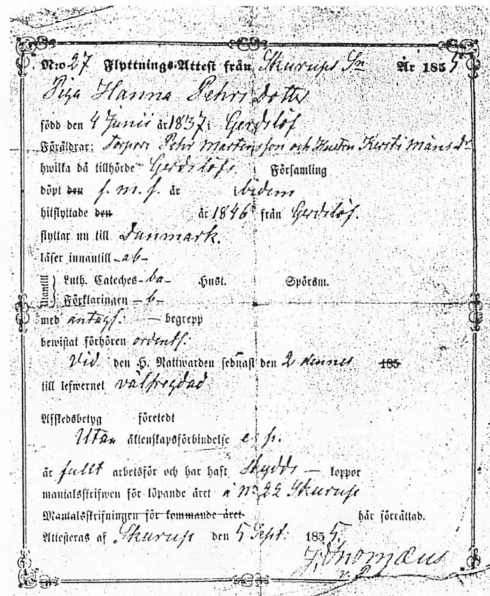 N:o 27 Flyttnings-Attest från Skurups Sn År 1855
Piga Hanna Pehrs Dotter
född den 4 Junii år 1837 i Gerdslöf
Föräldrar: Torparen Pehr Martensson och Hustru Kersti Måns Dr
hwilka då tillhörde Gerdslöfs Församling
döpt den s. m. f. år ibidem
hitflyttade den år 1846 från Gerdslöf.
flyttar nu till Danmark.
läser innantill -ab-
Utantill
Luth. Cateches -ba- Hust. Spörsm.
Förklaringen -b-
med antagl. — begrepp
bewistat förhören ordentl.
Vid den H. Nattwarden sednast den 2 dennes 185
till lefwernet välfregdad
Afskedsbetyg företedt
Utan äktenskapsförbindelse
är fullt arbetsför och har haft skydds — koppor
mantalsskrifwen för löpande året å No 22 Skurup
Mantalsskrifningen för kommande året här förrättad.
Attesteras af Skurup den 5 Sept: 1855.